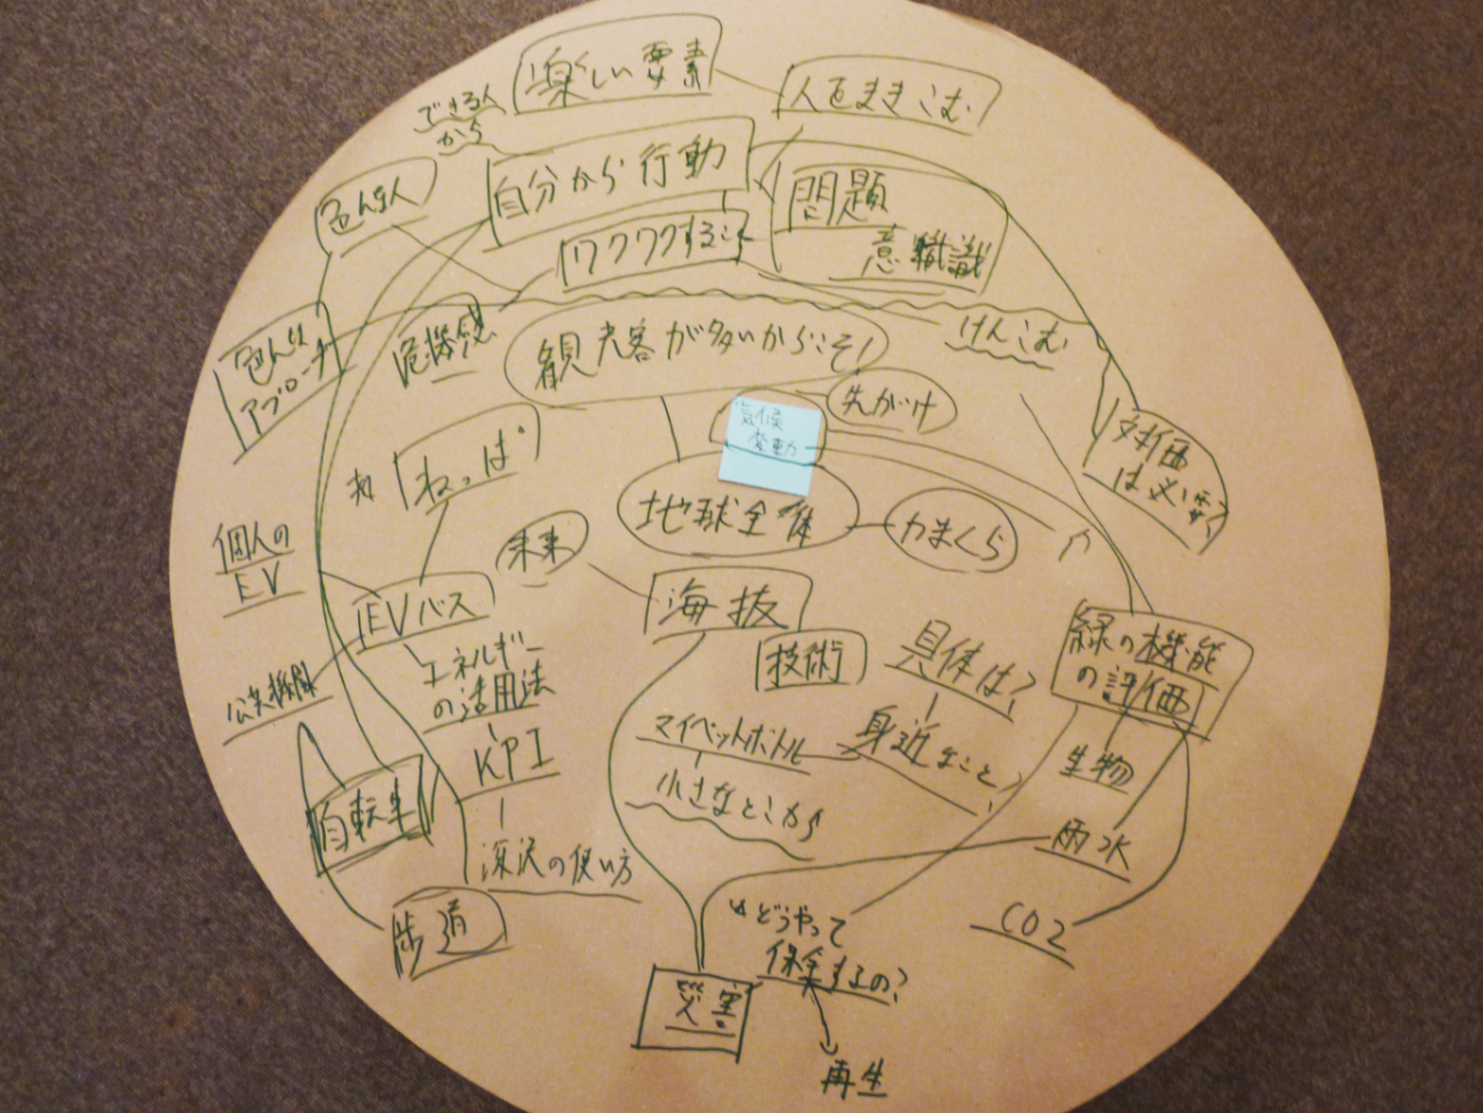 楽しい要素
人をまきこむ
できる人
から
自分から行動
色んな人
問題
意識
ワクワクすること
色んな
アプローチ
危機感
観光客が多いからこそ!
けんこむ
先がけ
気候
変動
対価
は必要?
ねっぱ。
地球全体
かまくら
未来
個人の
EV
EVバス
海抜
技術
具体は?
緑の機能
の評価
公共機関
エネルギー
の活用法
マイペットボトル
身近なこと
KPI
小さなとこから
生物
自転車
深沢の使い方
雨水
歩道
どうやって
保全するの?
CO2
災害
再生